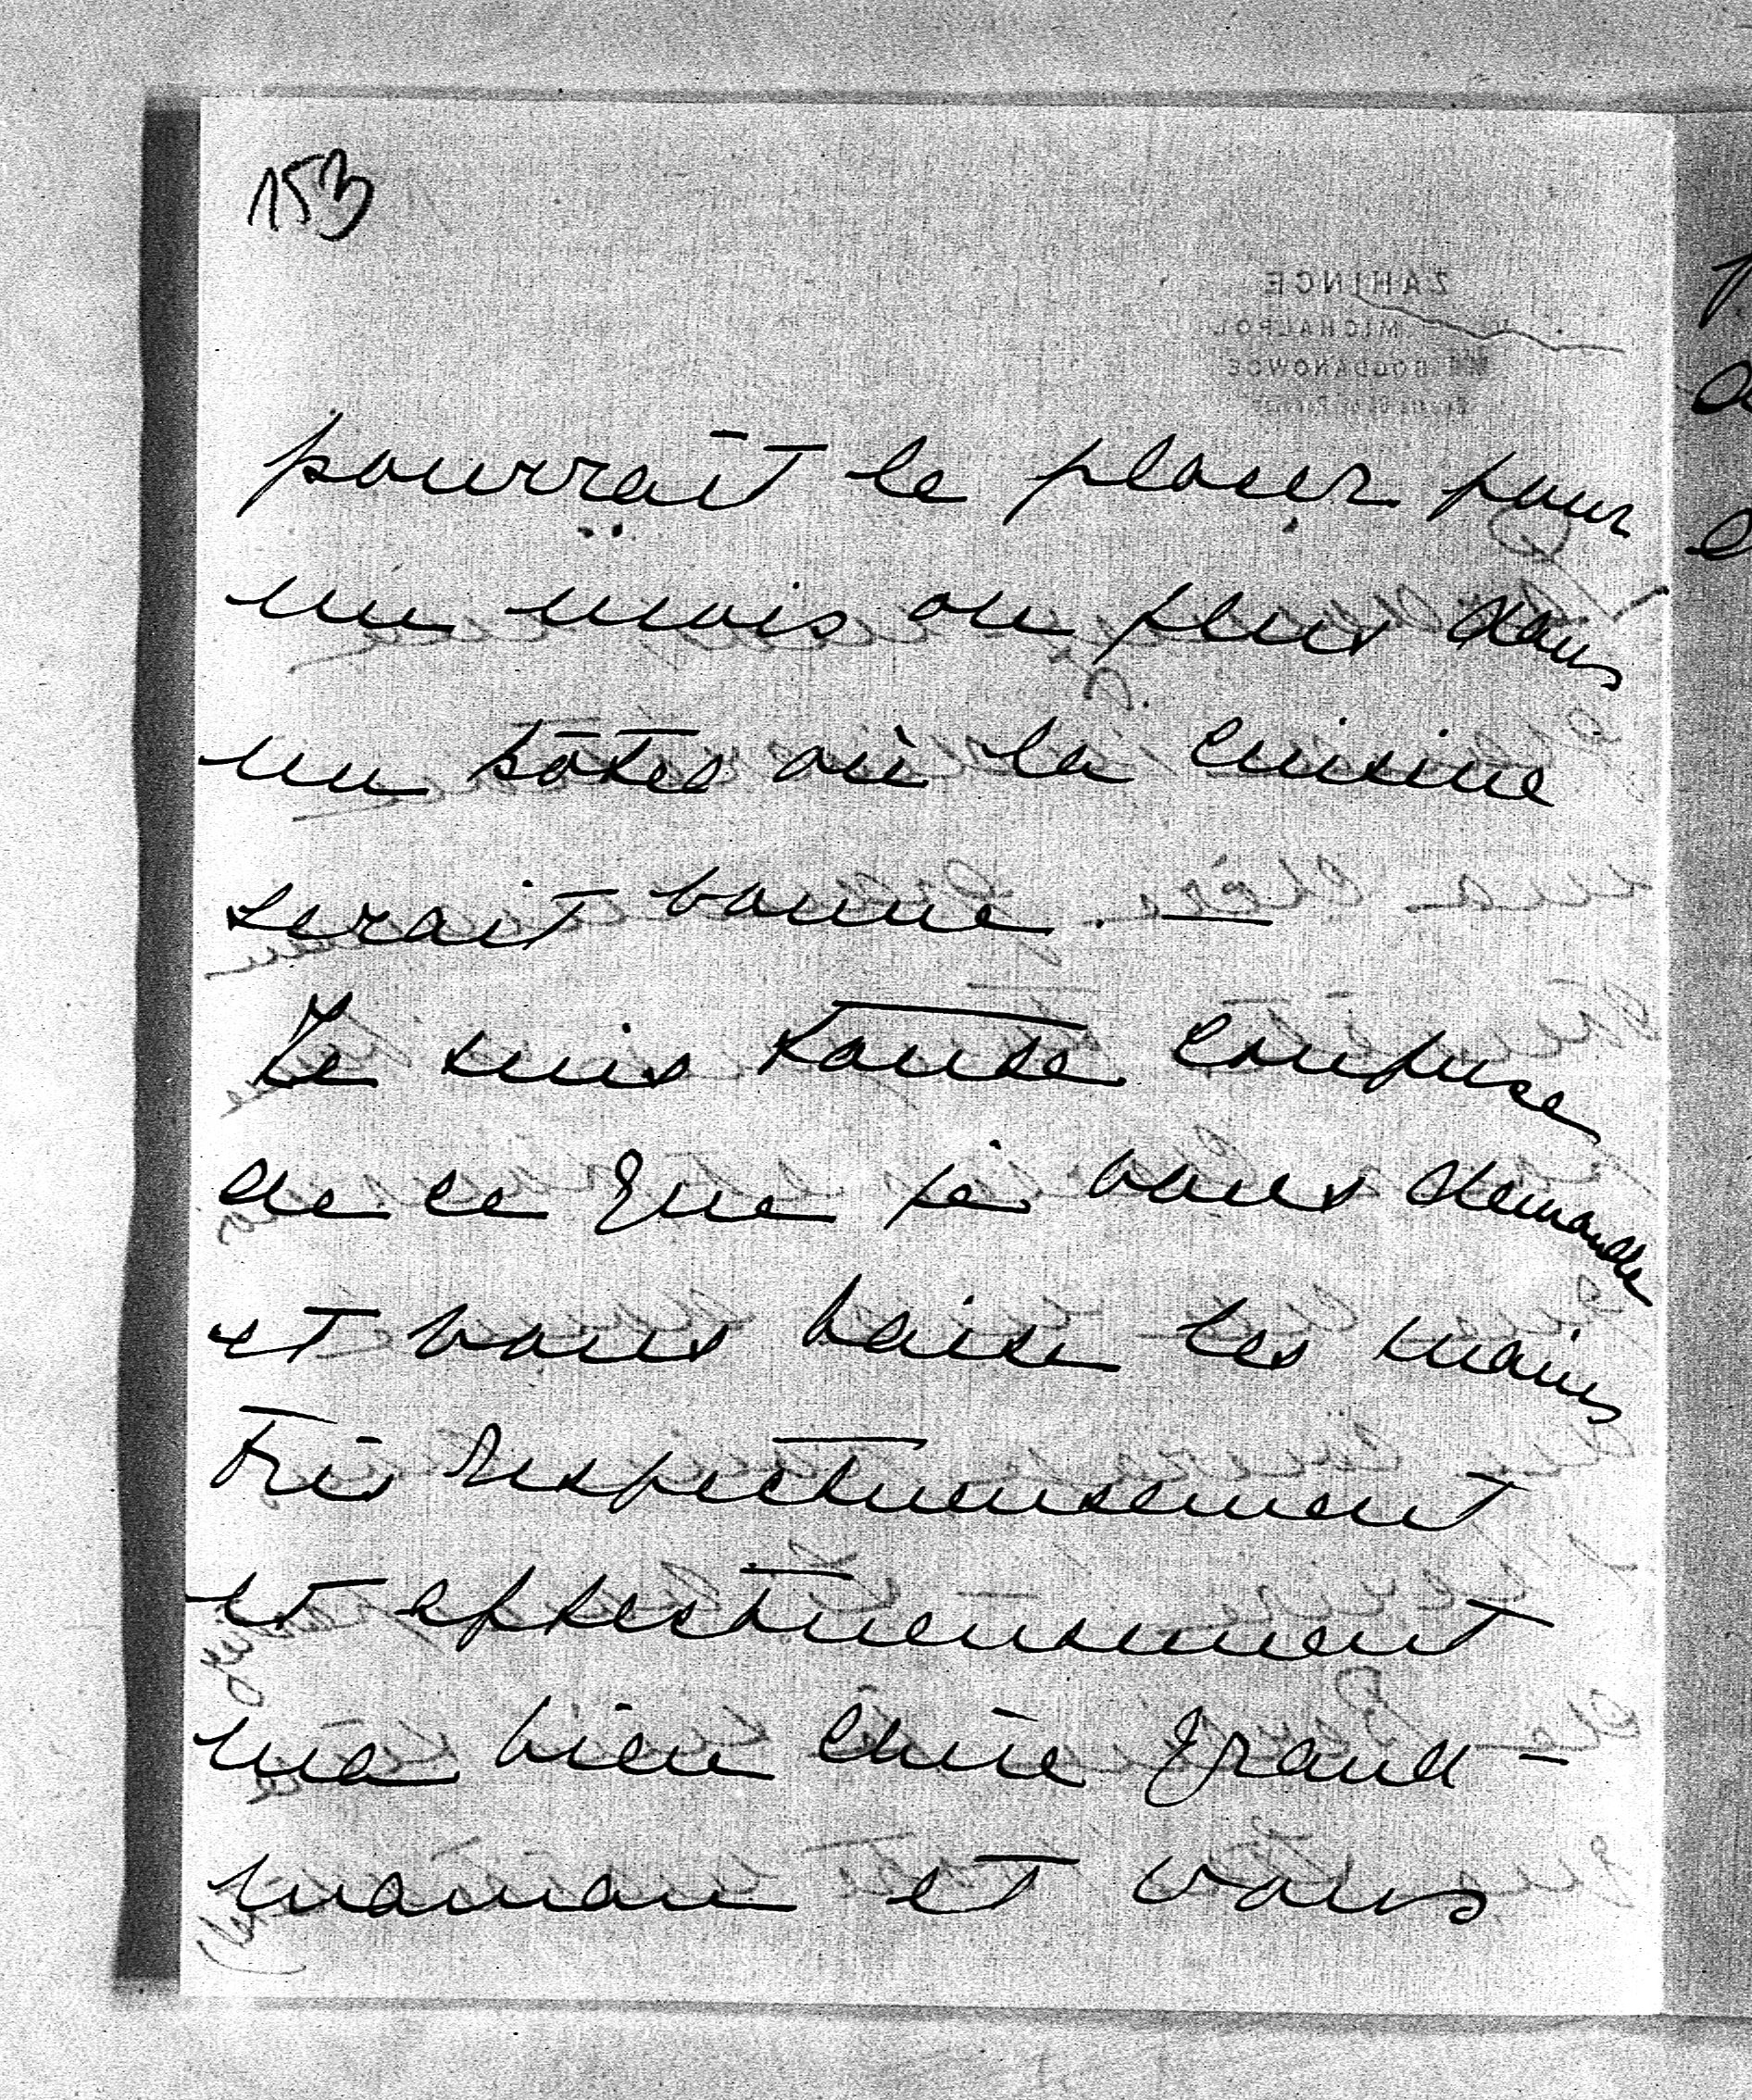 153
pourrait le placer pour
un mois ou plus dans
un hôtel où la cuisine
serait bonne. —
Je suis toute confuse
de ce que je vous demande
et vous baise les mains
très respectueusement
et affectueusement
ma bien chère Grand-
maman et vous